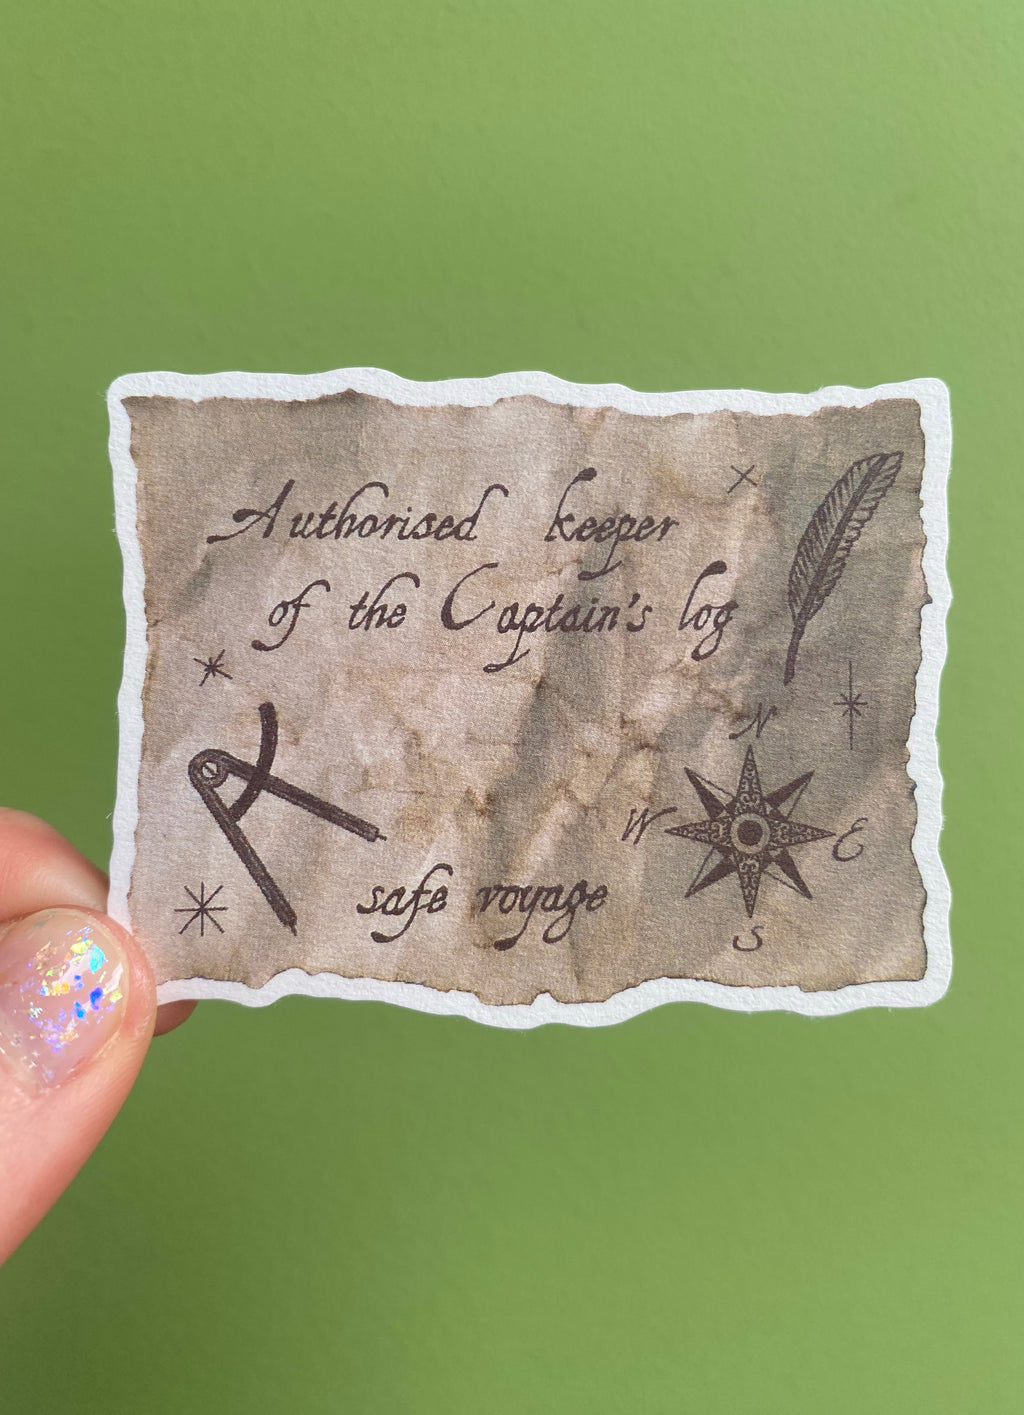 Authorised keeper
of the Captain's log
N
W E
S
safe voyage